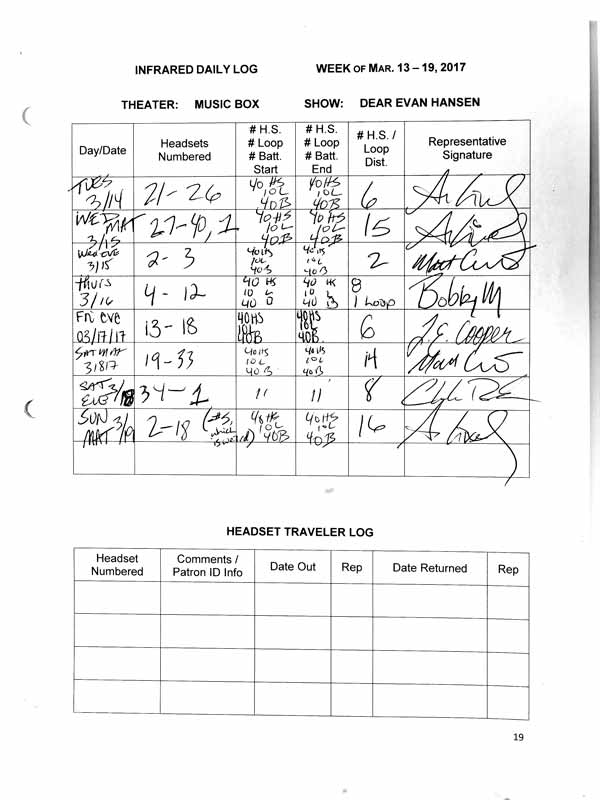 INFRARED DAILY LOG WEEK OF MAR. 13 – 19, 2017
THEATER: MUSIC BOX SHOW: DEAR EVAN HANSEN
Day/Date Headsets Numbered # H.S. # Loop # Batt. Start # H.S. # Loop # Batt. End # H.S. / Loop Dist. Representative Signature
TUES 3/14 21-26 40 HS 10L 40B 40HS 10L 40B 6
WED MAT 3/15 27-40, 1 40HS 10L 40B 40HS 10L 40B 15
WED EVE 3/15 2-3 40HS 10L 40B 40HS 10L 40B 2
Thurs 3/16 4-12 40 HS 10 L 40 B 40 HS 10 L 40 B 8 1 Loop Bobby M
Fri eve 03/17/17 13-18 40HS 10L 40B 40HS 10L 40B. 6 J.E. Cooper
SAT MAT 31817 19-33 40HS 10L 40B 40HS 10L 40B 14
SAT 3/18 EVE 34-1 11 11 8
SUN MAT 3/19 2-18 (-#5, which is weird) 40HS 10L 40B 40HS 10L 40B 16
HEADSET TRAVELER LOG
Headset Numbered Comments / Patron ID Info Date Out Rep Date Returned Rep
19